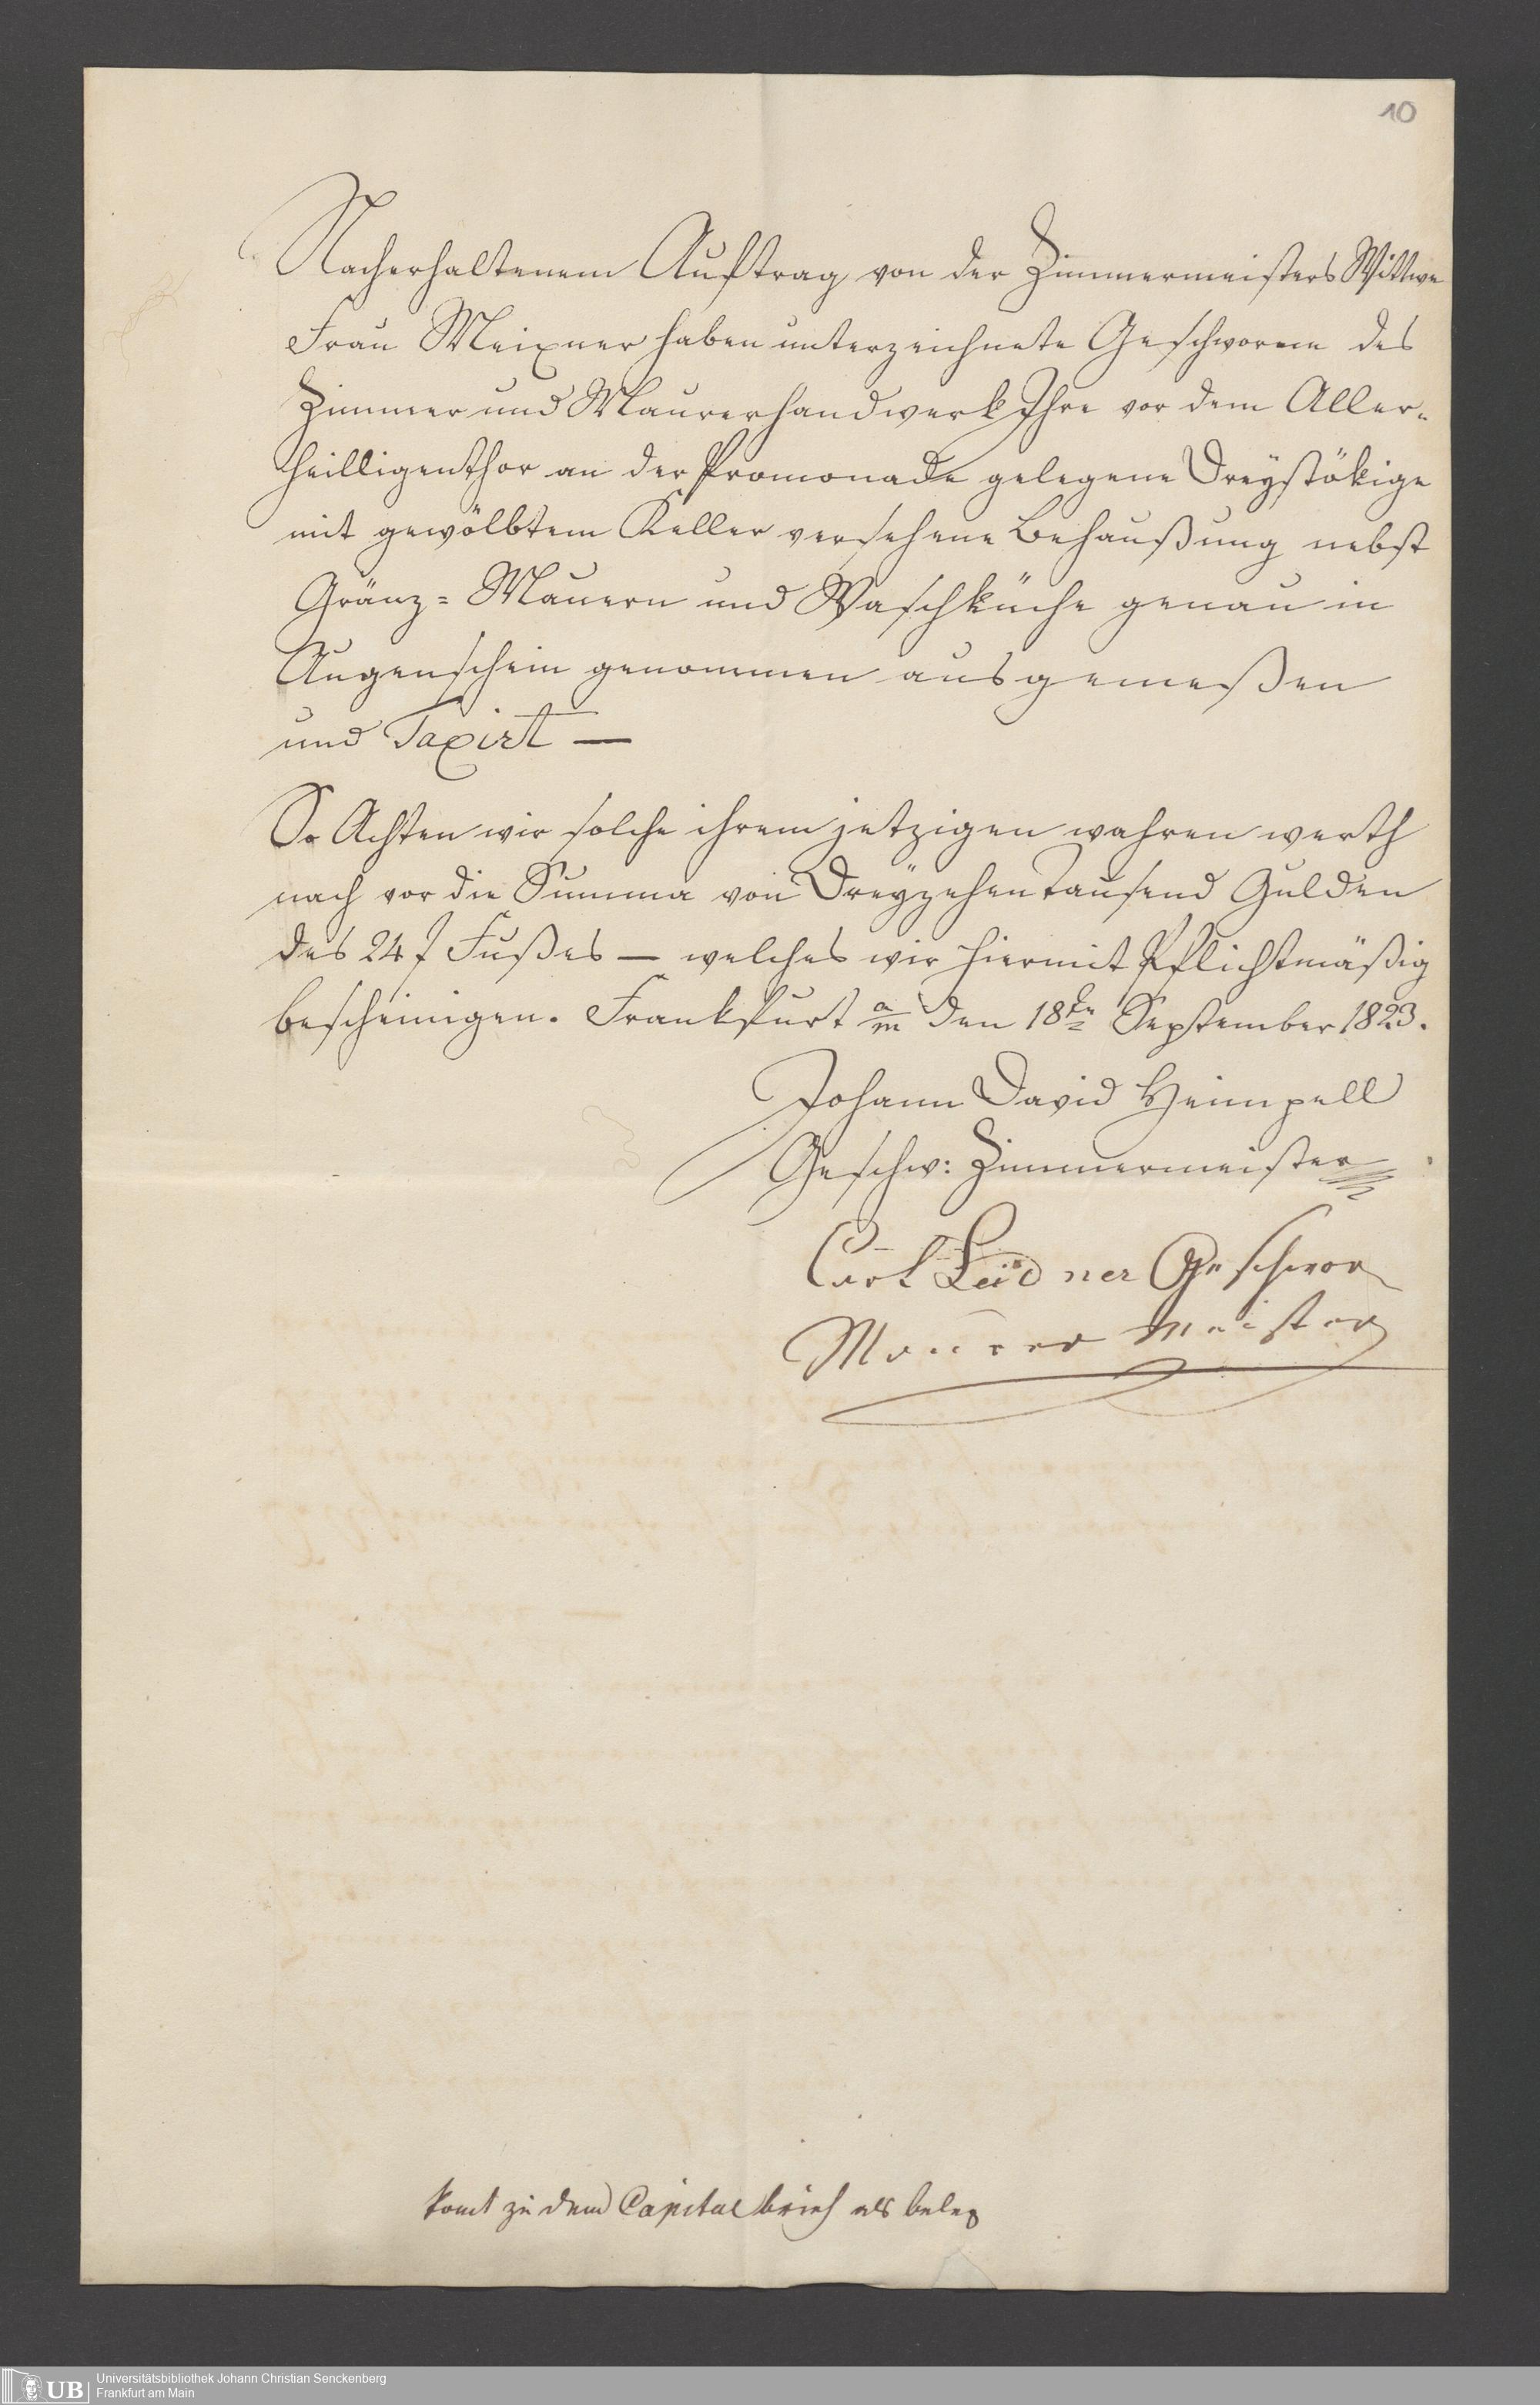 10
Nacherhaltenem Auftrag von der Zimmermeisters Wittwe
Frau Meixner haben unterzeichnete Geschworne des
Zimmer und Maurerhandwerk Ihre vor dem Aller-
heilligenthor an der Promonade gelegene Dreystökige
mit gewölbtem Keller versehene Behaußung nebst
Gränz= Mauern und Waschküche genau in
Augenschein genommen ausgemeßen
und Taxirt —
So Achten wir solche ihrem jetzigen wahren werth
nach vor die Summa von Dreyzehentausend Gulden
des 24 f Fußes — welches wir hiermit Pflichtmäßig
bescheinigen. Frankfurt a/m den 18ten September 1823.
Johann David Heimpell
Geschw: Zimmermeister
Carl Leidner Geschwor
Maurer Meister
komt zu dem Capital brief als beleg
UB
Universitätsbibliothek Johann Christian Senckenberg
Frankfurt am Main